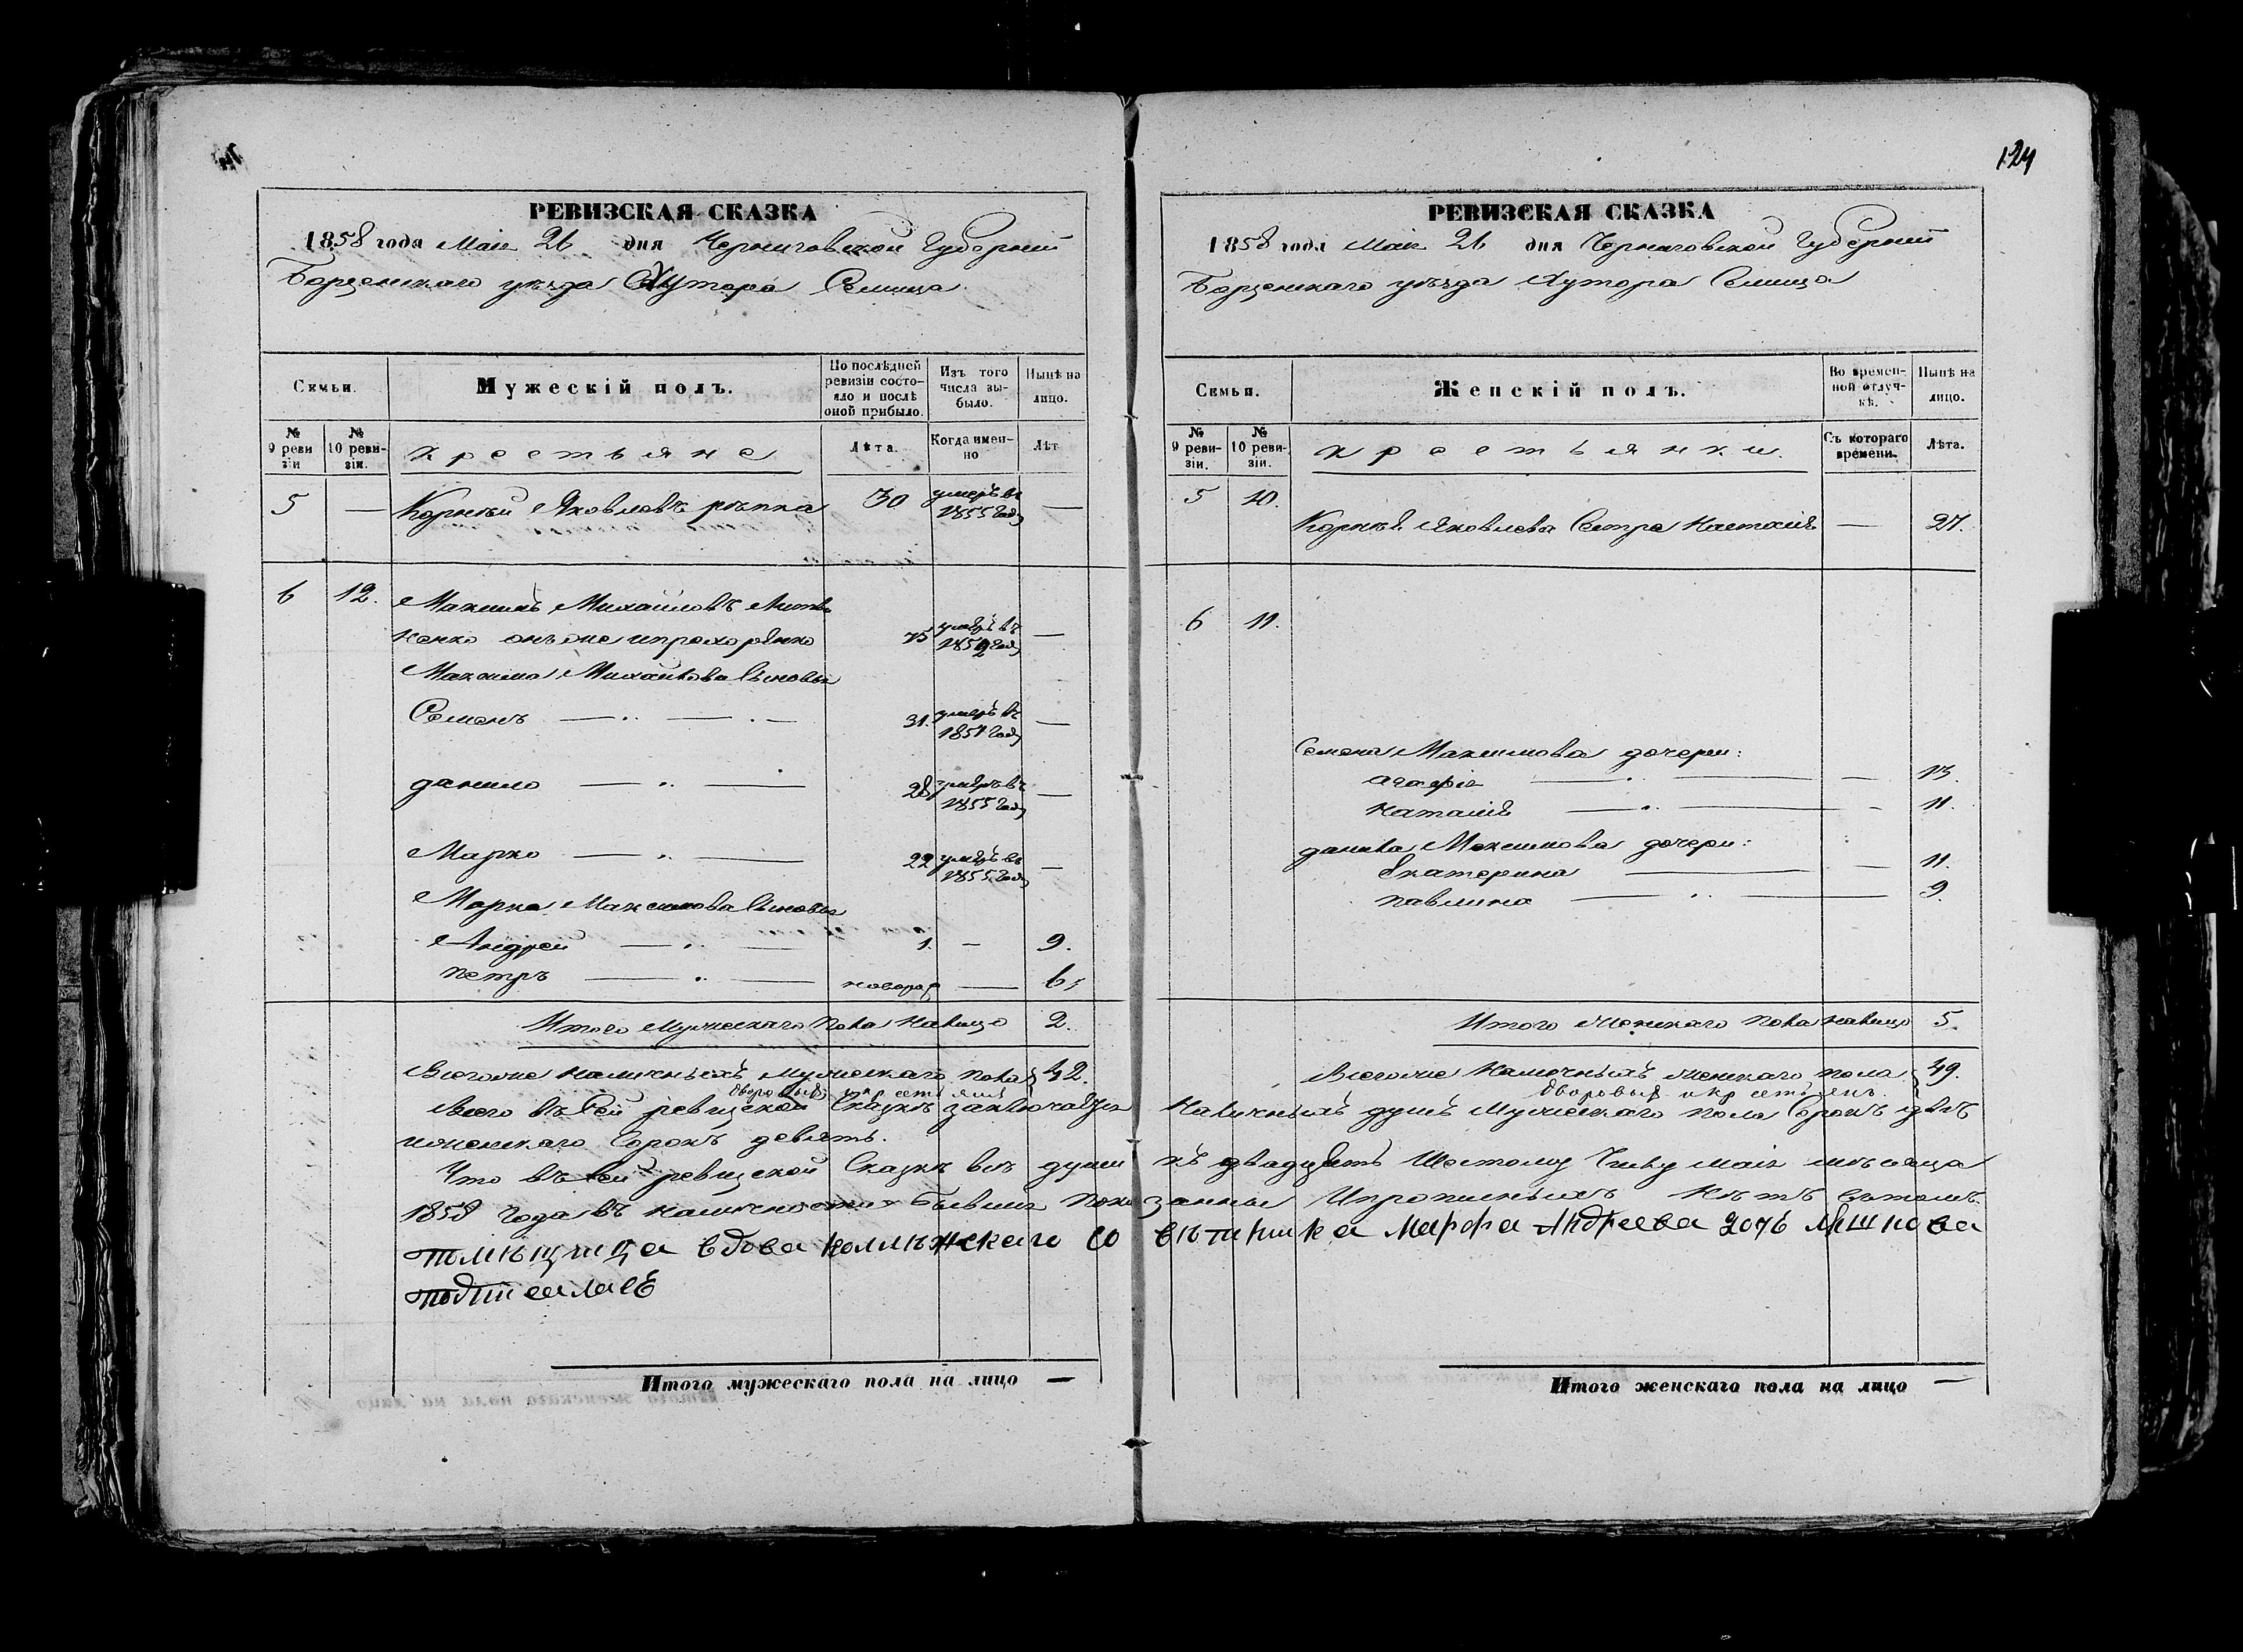 124
РЕВИЗСКАЯ СКАЗКА
1858 года Маія 26 дня Черниговской Губерніи
Борзенскаго уѣзда Хутора Селища
Семьи.
Мужескій полъ.
По послѣдней ревизіи состояло и послѣ оной прибыло.
Изъ того числа выбыло.
Нынѣ на лицо.
№ 9 ревизіи
№ 10 ревизіи.
крестьяне
Лѣта.
Когда именно
Лѣт
5 — Корнѣй Яковлевъ рѣпка 30 умеръ въ 1855 Году —
6 12. Максимъ Михайловъ Литв
ненко онъ же 75 умеръ въ 1852 Году —
Максима Михайлова Сыновья
Семенъ — " — " — 31. умеръ въ 1857 Году —
данило — " — 28 умеръ въ 1855 Году —
Марко — " — 22 умеръ въ 1855 Году —
Марка Максимова Сыновья
Андрей — " — 1. — 9.
петръ — " — новорож — 6.
Итого Мужескаго пола налицо 2.
Всего же наличныхъ мужескаго пола 42.
РЕВИЗСКАЯ СКАЗКА
1858 года Маія 26 дня Черниговской Губерніи
Борзенскаго уѣзда Хутора Селища
Семьи.
Женскій полъ.
Во временной отлучкѣ.
Нынѣ на лицо.
№ 9 ревизіи.
№ 10 ревизіи.
крестьянки.
Съ котораго времени.
Лѣта.
5 10. Корнѣя Яковлева Сестра Наталія — 27.
6 11.
Семена Максимова дочери:
агафія — " — — 13.
Наталія — " — - 11.
данила Максимова дочери:
Екатерина — — 11.
павлина — " — 9.
Итого женскаго пола налицо 5.
Всего же Наличныхъ женскаго пола 49.
дворовыхъ и крестьянъ дворовыхъ и крестьянъ.
Всего въ Сей ревизской Сказкѣ заключается Наличныхъ душъ Мужескаго пола Сорокъ двѣ
и женскаго Сорокъ девять.
Что въ Сей ревизской Сказкѣ всѣ души къ двадцать Шестому Числу Маія мѣсяца
1858 Года въ наличности бывшія показанны И прописныхъ Нѣтъ Вътомъ
помѣщица вдова колѣжскаго совѣтника Марфа Андреева дочь
подписалась
Итого мужескаго пола на лицо —
Итого женскаго пола на лицо —